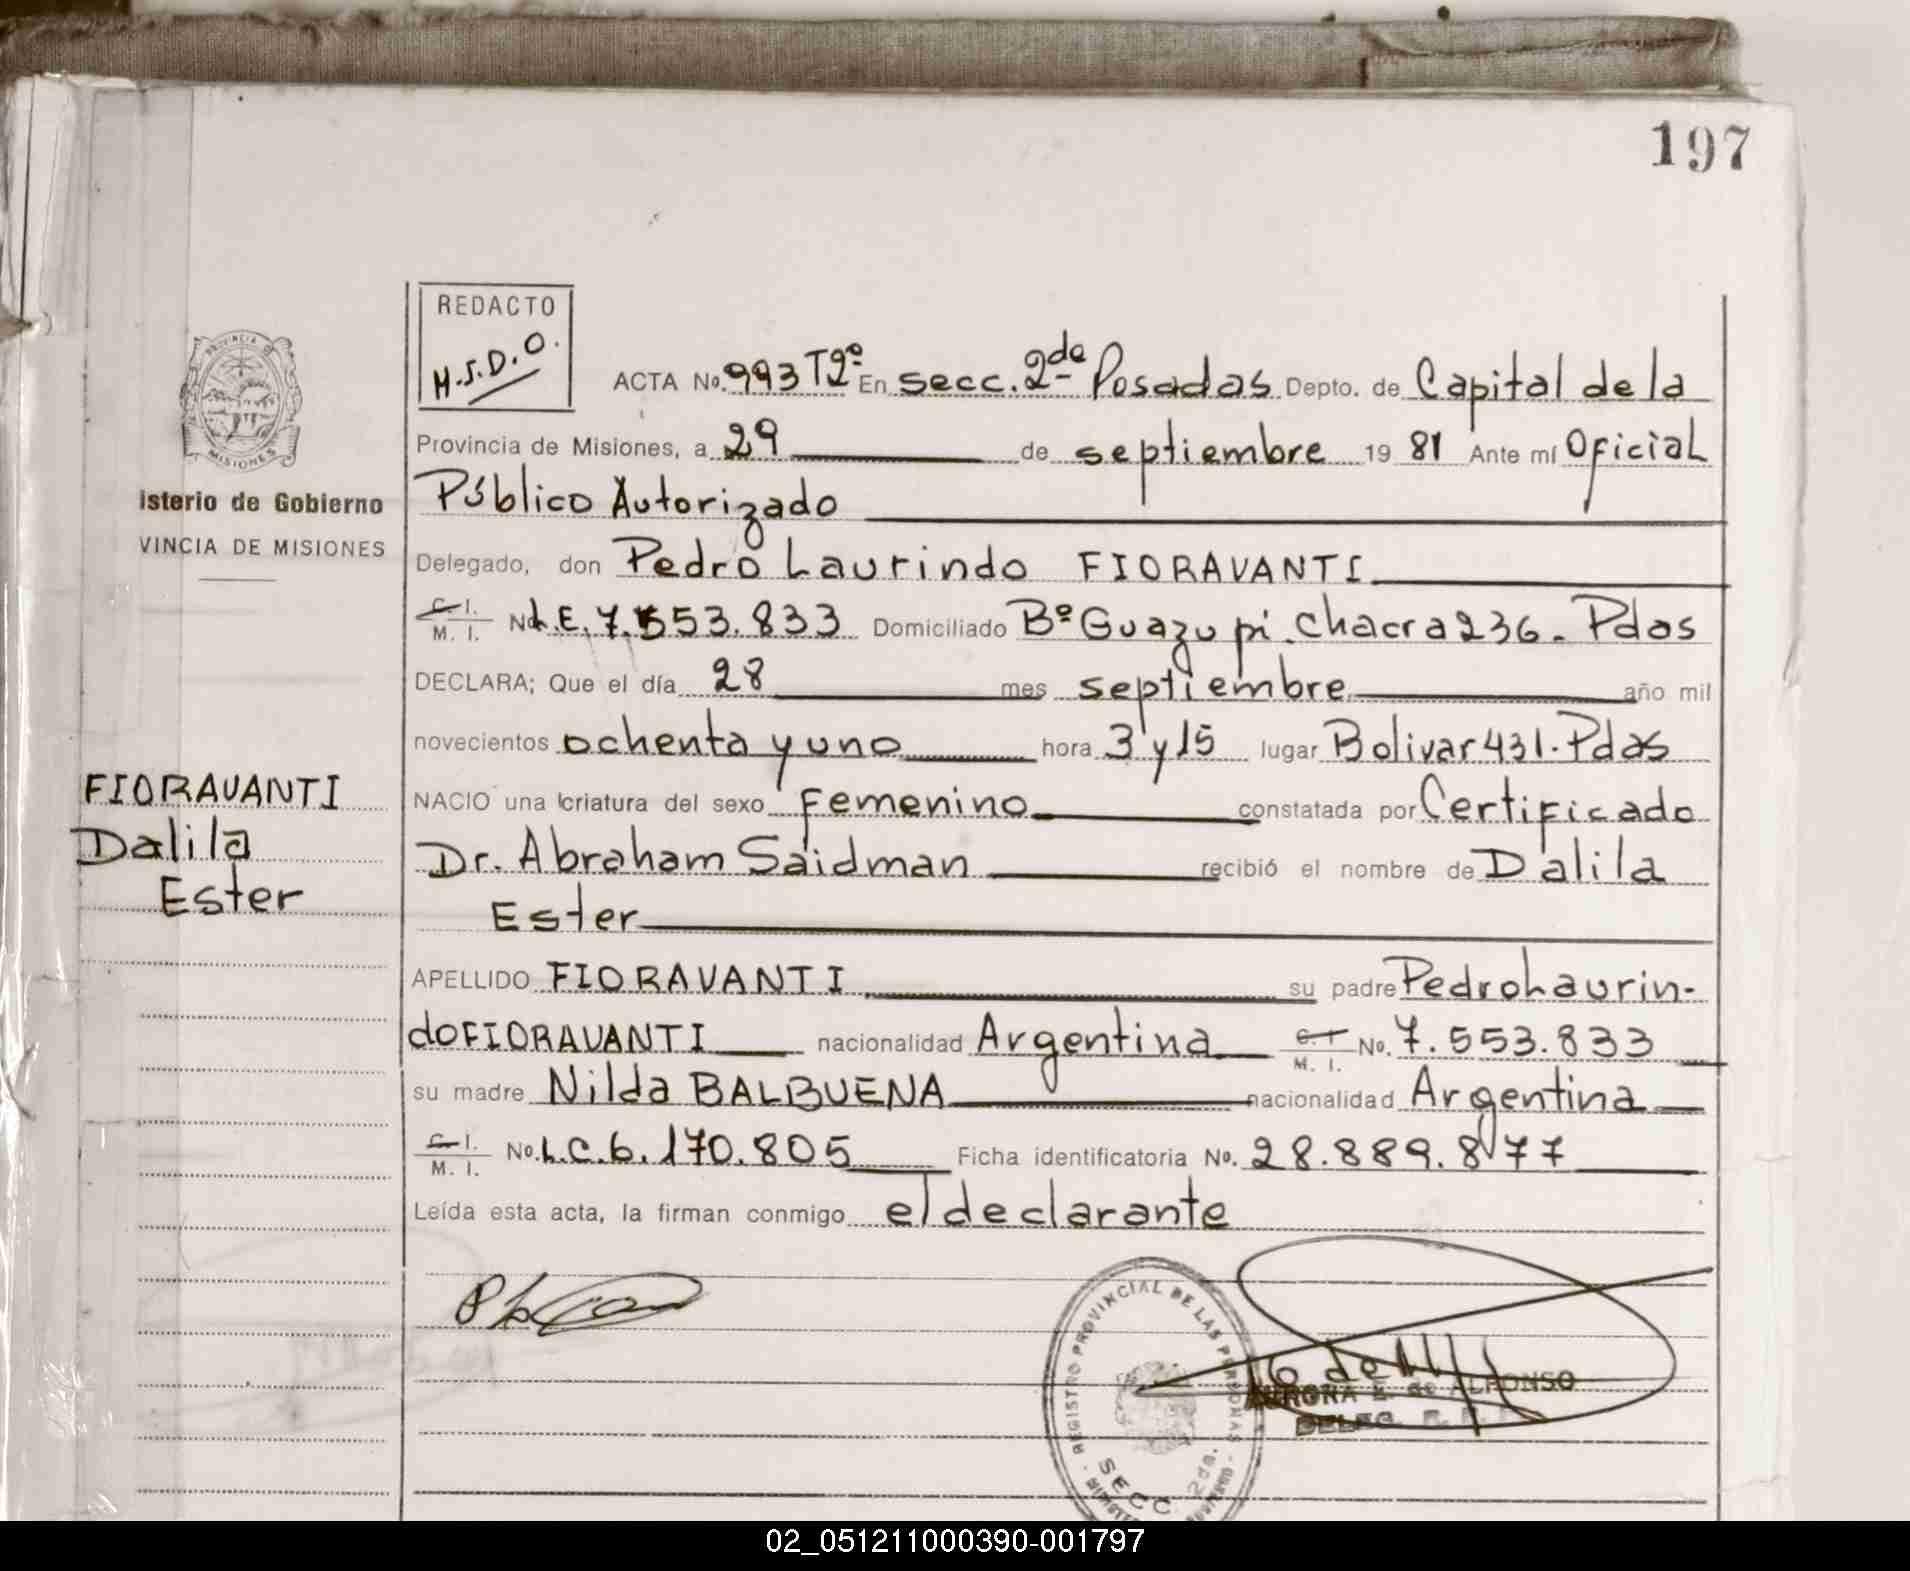 197
REDACTO
H.S.D.O.
PROVINCIA D
MISIONES
ACTA No. 993 Tº2º En secc. 2da Posadas Depto. de Capital de la
Provincia de Misiones, a 29 de septiembre 19 81 Ante mí Oficial
isterio de Gobierno
Público Autorizado
VINCIA DE MISIONES
Delegado, don Pedro Laurindo FIORAVANTI
C. I. / M. I. No L.E. 7.553.833 Domiciliado Bº Guazu pi. Chacra 236. Pdas
DECLARA; Que el día 28 mes septiembre año mil
novecientos ochenta y uno hora 3 y 15 lugar Bolivar 431. Pdas
FIORAVANTI
Dalila
Ester
NACIO una criatura del sexo femenino constatada por Certificado
Dr. Abraham Saidman recibió el nombre de Dalila
Ester
APELLIDO FIORAVANTI su padre Pedro Laurin-
do FIORAVANTI nacionalidad Argentina C. I. / M. I. No. 7.553.833
su madre Nilda BALBUENA nacionalidad Argentina
C. I. / M. I. No. L.C. 6.170.805 Ficha identificatoria No. 28.889.877
Leída esta acta, la firman conmigo el declarante
REGISTRO PROVINCIAL DE LAS PERSONAS
SECC 2da.
de ALFONSO
DELEG.
02_051211000390-001797